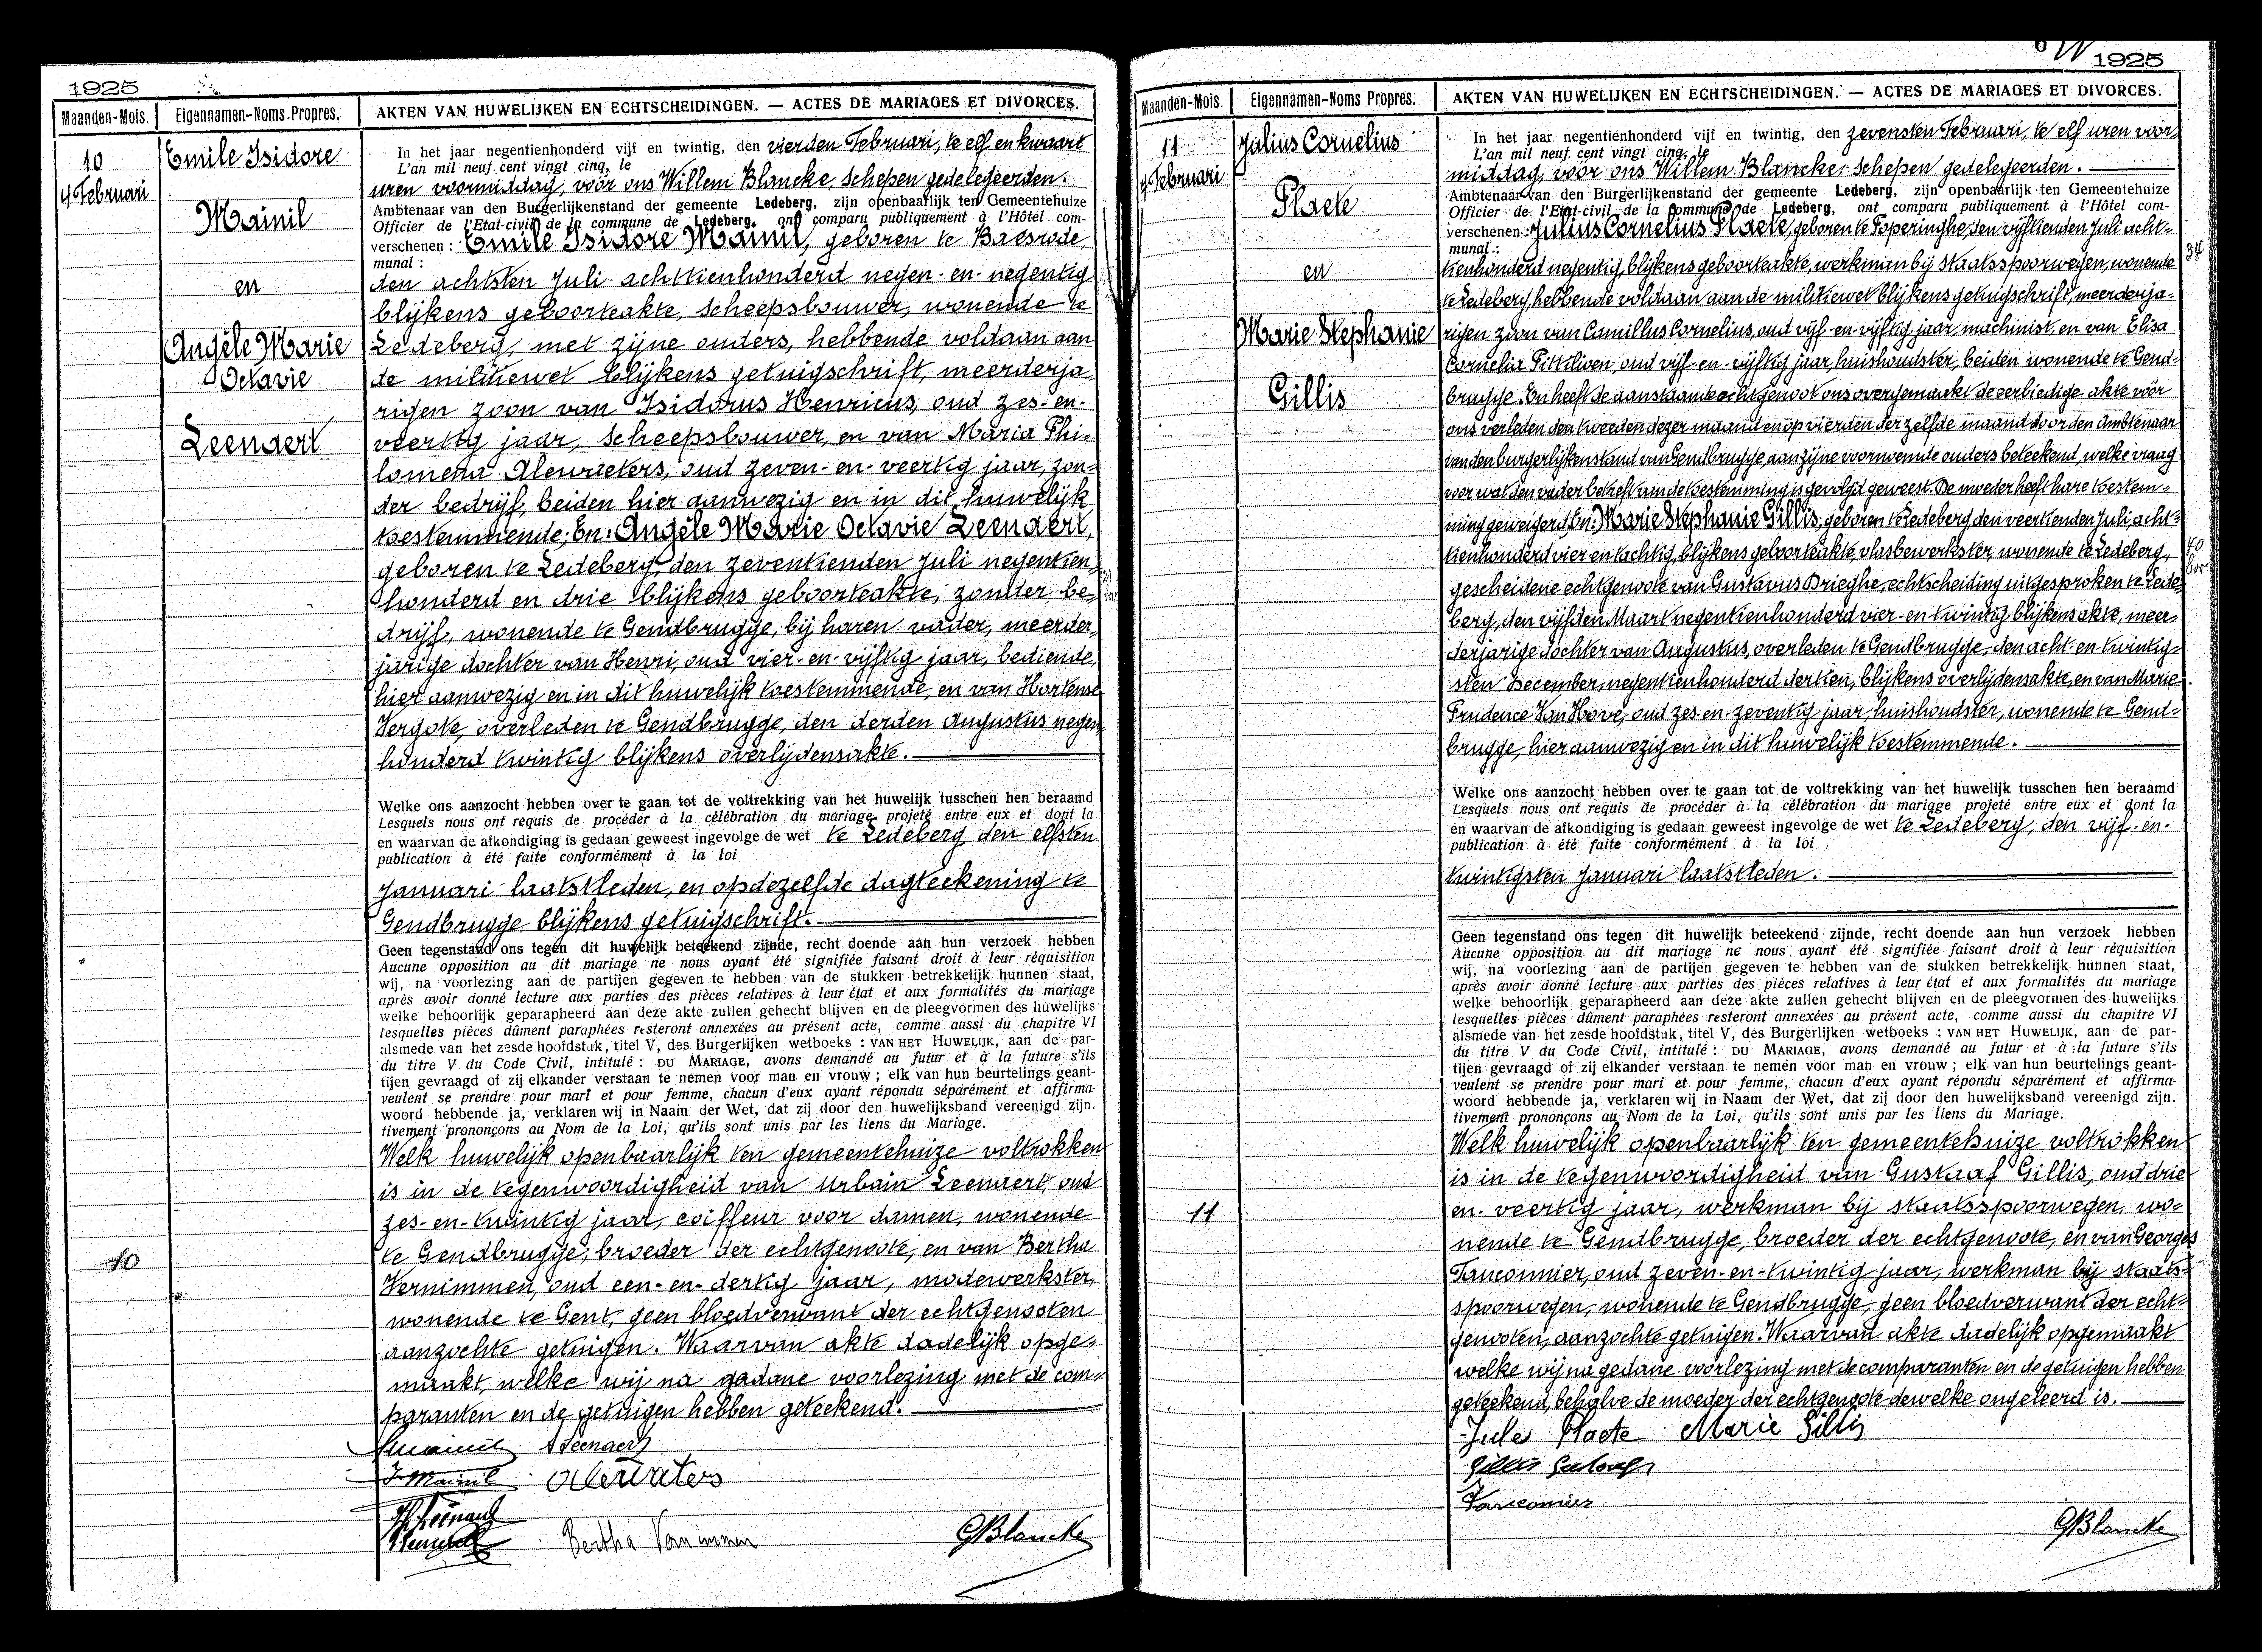 1925
Maanden-Mois.
Eigennamen-Noms Propres.
AKTEN VAN HUWELIJKEN EN ECHTSCHEIDINGEN. — ACTES DE MARIAGES ET DIVORCES.
10
4 Februari
Emile Isidore
Mainil
en
Angèle Marie
Octavie
Leenaert
10
In het jaar negentienhonderd vijf en twintig, den vierden Februari, te elf en kwaart
L'an mil neuf cent vingt cinq, le
uren voormiddag, voor ons Willem Blancke, schepen gedelegeerden.
Ambtenaar van den Burgerlijkenstand der gemeente Ledeberg, zijn openbaarlijk ten Gemeentehuize
Officier de l'Etat-civil de la commune de Ledeberg, ont comparu publiquement à l'Hôtel com-
verschenen : Emile Isidore Mainil, geboren te Baesrode
munal :
den achtsten Juli achttienhonderd negen-en-negentig
blijkens geboorteakte, scheepsbouwer, wonende te
Ledeberg, met zijne ouders, hebbende voldaan aan
de militiewet blijkens getuigschrift, meerderja-
rigen zoon van Isidorus Henricus, oud zes-en-
veertig jaar, scheepsbouwer, en van Maria Phi-
lomena Alewaeters, oud zeven-en-veertig jaar, zon-
der bedrijf, beiden hier aanwezig en in dit huwelijk
toestemmende; En: Angèle Marie Octavie Leenaert,
geboren te Ledeberg, den zeventienden Juli negentien-
honderd en drie blijkens geboorteakte, zonder be-
drijf, wonende te Gendbrugge, bij haren vader, meerder-
jarige dochter van Henri, oud vier-en-vijftig jaar, bediende,
hier aanwezig en in dit huwelijk toestemmende, en van Hortense
Vergote, overleden te Gendbrugge, den derden Augustus negen-
honderd twintig blijkens overlijdensakte.
Welke ons aanzocht hebben over te gaan tot de voltrekking van het huwelijk tusschen hen beraamd
Lesquels nous ont requis de procéder à la célébration du mariage projeté entre eux et dont la
en waarvan de afkondiging is gedaan geweest ingevolge de wet te Ledeberg den elfsten
publication à été faite conformément à la loi
Januari laatstleden, en op dezelfde dagteekening te
Gendbrugge blijkens getuigschrift.
Geen tegenstand ons tegen dit huwelijk beteekend zijnde, recht doende aan hun verzoek hebben
Aucune opposition au dit mariage ne nous ayant été signifiée faisant droit à leur réquisition
wij, na voorlezing aan de partijen gegeven te hebben van de stukken betrekkelijk hunnen staat,
après avoir donné lecture aux parties des pièces relatives à leur état et aux formalités du mariage
welke behoorlijk geparapheerd aan deze akte zullen gehecht blijven en de pleegvormen des huwelijks
lesquelles pièces dûment paraphées resteront annexées au présent acte, comme aussi du chapitre VI
alsmede van het zesde hoofdstuk, titel V, des Burgerlijken wetboeks : VAN HET HUWELIJK, aan de par-
du titre V du Code Civil, intitulé : DU MARIAGE, avons demandé au futur et à la future s'ils
tijen gevraagd of zij elkander verstaan te nemen voor man en vrouw ; elk van hun beurtelings geant-
veulent se prendre pour mari et pour femme, chacun d'eux ayant répondu séparément et affirma-
woord hebbende ja, verklaren wij in Naam der Wet, dat zij door den huwelijksband vereenigd zijn.
tivement prononçons au Nom de la Loi, qu'ils sont unis par les liens du Mariage.
Welk huwelijk openbaarlijk ten gemeentehuize voltrokken
is in de tegenwoordigheid van Urbain Leenaert, oud
zes-en-twintig jaar, coiffeur voor damen, wonende
te Gendbrugge, broeder der echtgenoote, en van Bertha
Vernimmen, oud een-en-dertig jaar, modewerkster,
wonende te Gent, geen bloedverwant der echtgenooten
aanzochte getuigen. Waarvan akte dadelijk opge-
maakt, welke wij na gadane voorlezing met de com-
paranten en de getuigen hebben geteekend.
A Leenaert
I. Mainil
Bertha Vernimmen
GBlancke
1925
Maanden-Mois.
Eigennamen-Noms Propres.
AKTEN VAN HUWELIJKEN EN ECHTSCHEIDINGEN. — ACTES DE MARIAGES ET DIVORCES.
11
7 Februari
Julius Cornelius
Plaete
en
Marie Stephanie
Gillis
11
34
40
In het jaar negentienhonderd vijf en twintig, den zevensten Februari, te elf uren voor-
L'an mil neuf cent vingt cinq, le
middag, voor ons Willem Blancke, schepen gedelegeerden.
Ambtenaar van den Burgerlijkenstand der gemeente Ledeberg, zijn openbaarlijk ten Gemeentehuize
Officier de l'Etat-civil de la commune de Ledeberg, ont comparu publiquement à l'Hôtel com-
verschenen : Julius Cornelius Plaete, geboren te Poperinghe, den vijftienden Juli acht-
munal :
tienhonderd negentig, blijkens geboorteakte, werkman bij staatsspoorwegen, wonende
te Ledeberg, hebbende voldaan aan de militiewet blijkens getuigschrift, meerderja-
rigen zoon van Camillus Cornelius, oud vijf-en-vijftig jaar, machinist, en van Elisa
Cornelia Pittilioen, oud vijf-en-vijftig jaar, huishoudster, beiden wonende te Gend-
brugge. En heeft de aanstaande echtgenoot ons overgemaakt de eerbiedige akte voor
ons verleden den tweeden dezer maand en op vierden der zelfde maand door den Ambtenaar
van den burgerlijkenstand van Gendbrugge, aan zijne voornoemde ouders beteekend, welke vraag
voor wat den vader betreft van de toestemming is gevolgd geweest. De moeder heeft hare toestem-
ming geweigerd, En: Marie Stephanie Gillis, geboren te Ledeberg den veertienden Juli, acht-
tienhonderd vier en tachtig, blijkens geboorteakte, vlasbewerkster, wonende te Ledeberg,
gescheidene echtgenoote van Gustavus Drieghe, echtscheiding uitgesproken te Lede-
berg, den vijfden Maart negentienhonderd vier-en-twintig blijkens akte, meer-
derjarige dochter van Augustus, overleden te Gendbrugge, den acht-en-twintig-
sten December, negentienhonderd dertien, blijkens overlijdensakte, en van Marie-
Prudence Van Hove, oud zes-en-zeventig jaar, huishoudster, wonende te Gend-
brugge, hier aanwezig en in dit huwelijk toestemmende.
Welke ons aanzocht hebben over te gaan tot de voltrekking van het huwelijk tusschen hen beraamd
Lesquels nous ont requis de procéder à la célébration du mariage projeté entre eux et dont la
en waarvan de afkondiging is gedaan geweest ingevolge de wet te Ledeberg, den vijf-en-
publication à été faite conformément à la loi
twintigsten Januari laatstleden.
Geen tegenstand ons tegen dit huwelijk beteekend zijnde, recht doende aan hun verzoek hebben
Aucune opposition au dit mariage ne nous ayant été signifiée faisant droit à leur réquisition
wij, na voorlezing aan de partijen gegeven te hebben van de stukken betrekkelijk hunnen staat,
après avoir donné lecture aux parties des pièces relatives à leur état et aux formalités du mariage
welke behoorlijk geparapheerd aan deze akte zullen gehecht blijven en de pleegvormen des huwelijks
lesquelles pièces dûment paraphées resteront annexées au présent acte, comme aussi du chapitre VI
alsmede van het zesde hoofdstuk, titel V, des Burgerlijken wetboeks : VAN HET HUWELIJK, aan de par-
du titre V du Code Civil, intitulé : DU MARIAGE, avons demandé au futur et à la future s'ils
tijen gevraagd of zij elkander verstaan te nemen voor man en vrouw ; elk van hun beurtelings geant-
veulent se prendre pour mari et pour femme, chacun d'eux ayant répondu séparément et affirma-
woord hebbende ja, verklaren wij in Naam der Wet, dat zij door den huwelijksband vereenigd zijn.
tivement prononçons au Nom de la Loi, qu'ils sont unis par les liens du Mariage.
Welk huwelijk openbaarlijk ten gemeentehuize voltrokken
is in de tegenwoordigheid van Gustaaf Gillis, oud drie
en-veertig jaar, werkman bij staatsspoorwegen, wo-
nende te Gendbrugge, broeder der echtgenoote, en van Georges
Tanconnier, oud zeven-en-twintig jaar, werkman bij staats-
spoorwegen, wonende te Gendbrugge, geen bloedverwant der echt-
genooten, aanzochte getuigen. Waarvan akte dadelijk opgemaakt
welke wij na gedane voorlezing met de comparanten en de getuigen hebben
geteekend, behalve de moeder der echtgenoote dewelke ongeleerd is.
Jules Plaete Marie Gillis
Gillis Gustaaf
GBlancke